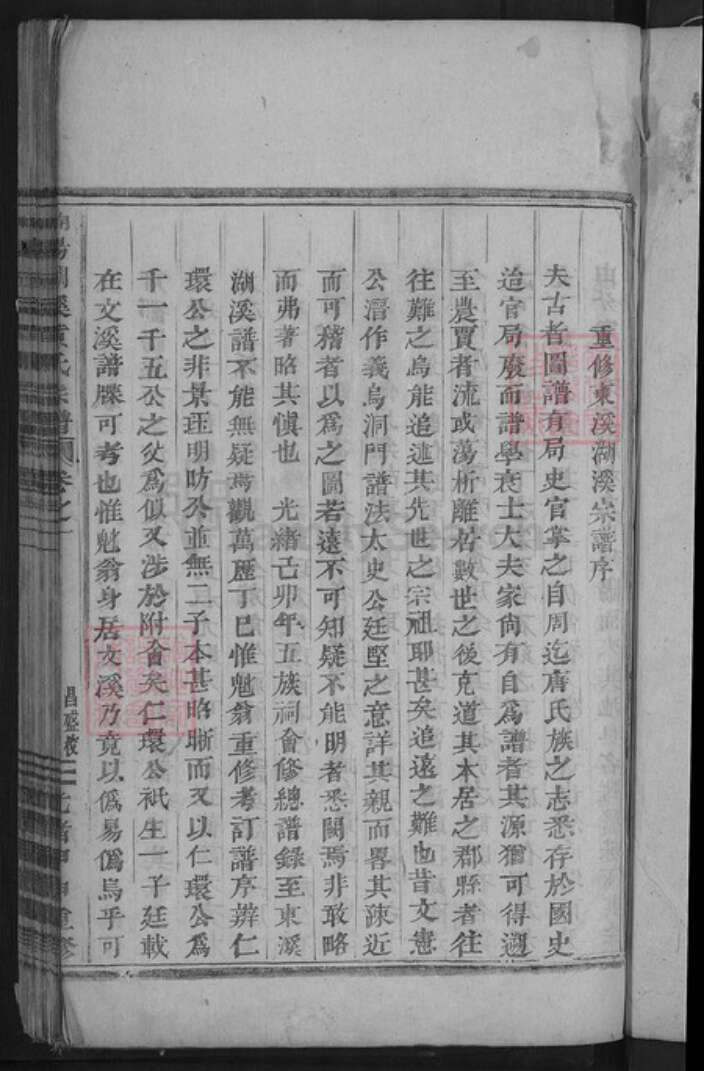 重修東溪湖溪宗譜序
夫古者圖譜有局史官掌之自周迄唐氏族之志悉存於國史
迨官局廢而譜學衰士大夫家尚有自為譜者其源猶可得遡
至農賈者流或蕩析離居數世之後克道其本居之郡縣者往
往難之烏能追述其先世之宗祖耶甚矣追遠之難也昔文憲
公濳作義烏洞門譜法太史公廷堅之意詳其親而畧其疎近
而可稽者以為之圖若遠不可知疑不能明者悉闕焉非敢略
而弗著略其慎也 光緒己卯年五族祠會修總譜錄至東溪
湖溪譜不能無疑焉觀萬歷丁巳惟魁翁重修考訂譜序辨仁
環公之非景珪明昉公並無二子本甚昭晰而又以仁環公為
千一千五公之父為似又涉於附會矣仁環公祇生一子廷載
在文溪譜牒可考也惟魁翁身居文溪乃竟以偽易偽烏乎可
湖溪黃氏宗譜 卷之一
昌盛敬 二 光緒甲申重修